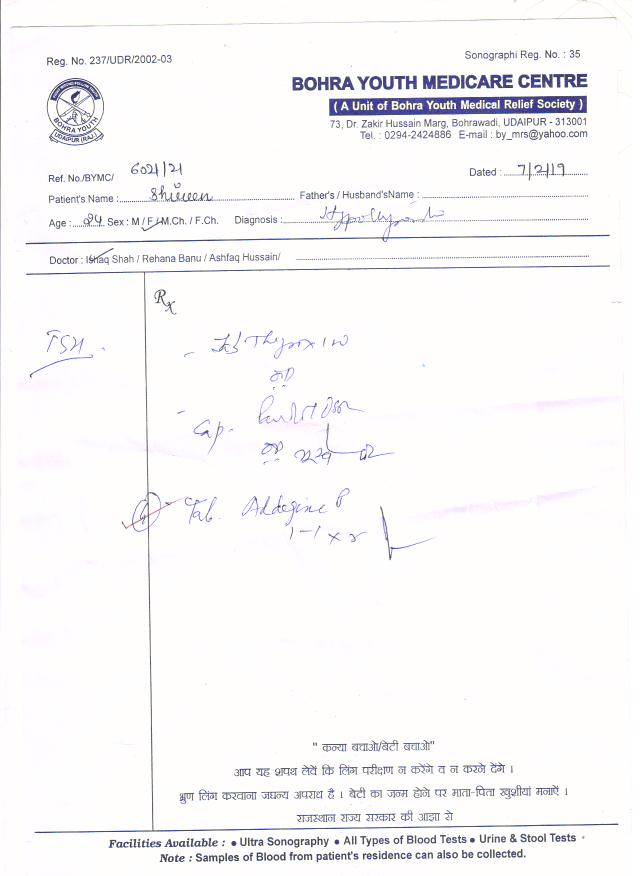 Reg. No. 237/UDR/2002-03
Sonographi Reg. No. : 35
BOHRA YOUTH MEDICARE CENTRE
( A Unit of Bohra Youth Medical Relief Society )
73, Dr. Zakir Hussain Marg, Bohrawadi, UDAIPUR - 313001
Tel. : 0294-2424886 E-mail : by_mrs@yahoo.com
BOHRA YOUTH
UDAIPUR (RAJ.)
Ref. No./BYMC/ 6021/21
Dated : 7/2/19
Patient's Name : Father's / Husband'sName :
Age : 24 Sex : M / F / M.Ch. / F.Ch. Diagnosis :
Doctor : Ishaq Shah / Rehana Banu / Ashfaq Hussain/
Rx
TSH
OD
Cap.
OD
Tab.
1-1 x
" कन्या बचाओ/बेटी बचाओ"
आप यह शपथ लेवें कि लिंग परीक्षण न करेंगे व न करने देंगे ।
भ्रुण लिंग करवाना जघन्य अपराध है । बेटी का जन्म होने पर माता-पिता खुशीयां मनाऐं ।
राजस्थान राज्य सरकार की आज्ञा से
Facilities Available : ● Ultra Sonography ● All Types of Blood Tests ● Urine & Stool Tests
Note : Samples of Blood from patient's residence can also be collected.